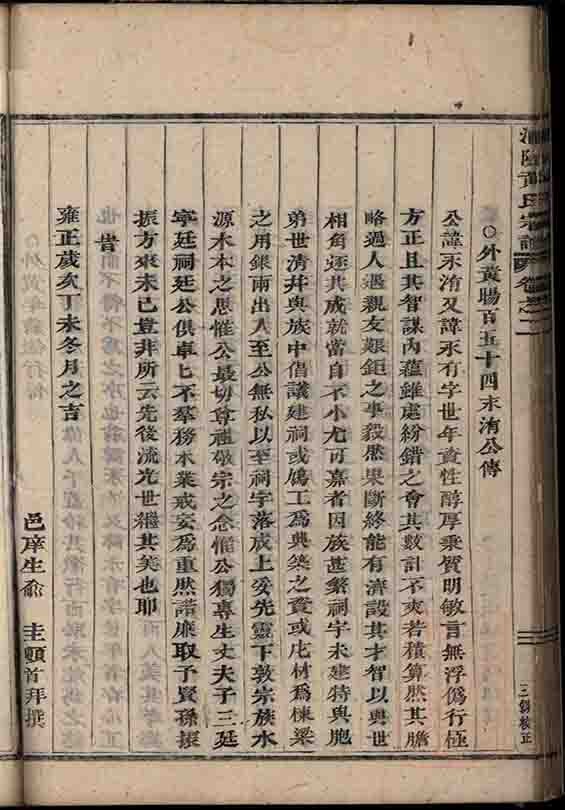 黃氏宗譜 卷之二
○外黃腸百五十四永洧公傳
公諱永洧又諱永有字世年資性醇厚秉質明敏言無浮偽行極
方正且其智謀內蘊雖處紛錯之會其數計不爽若積算然其膽
略過人遇親友艱鉅之事毅然果斷終能有濟設其才智以與世
相角逐其成就當自不小尤可嘉者因族甚繁祠宇未建特與胞
弟世清幷與族中倡議建祠或鳩工為興築之資或庀材為棟梁
之用銀兩出入至公無私以至祠宇落成上妥先靈下敦宗族水
源木本之思惟公最切尊祖敬宗之念惟公獨專生丈夫子三廷
寧廷祠廷公俱卓七不羣務本業戒妄為重然諾廉取予賢孫振
振方來未已豈非所云先後流光世繼其美也耶
旹
雍正歲次丁未冬月之吉
邑庠生俞 圭頓首拜撰
三錫校正